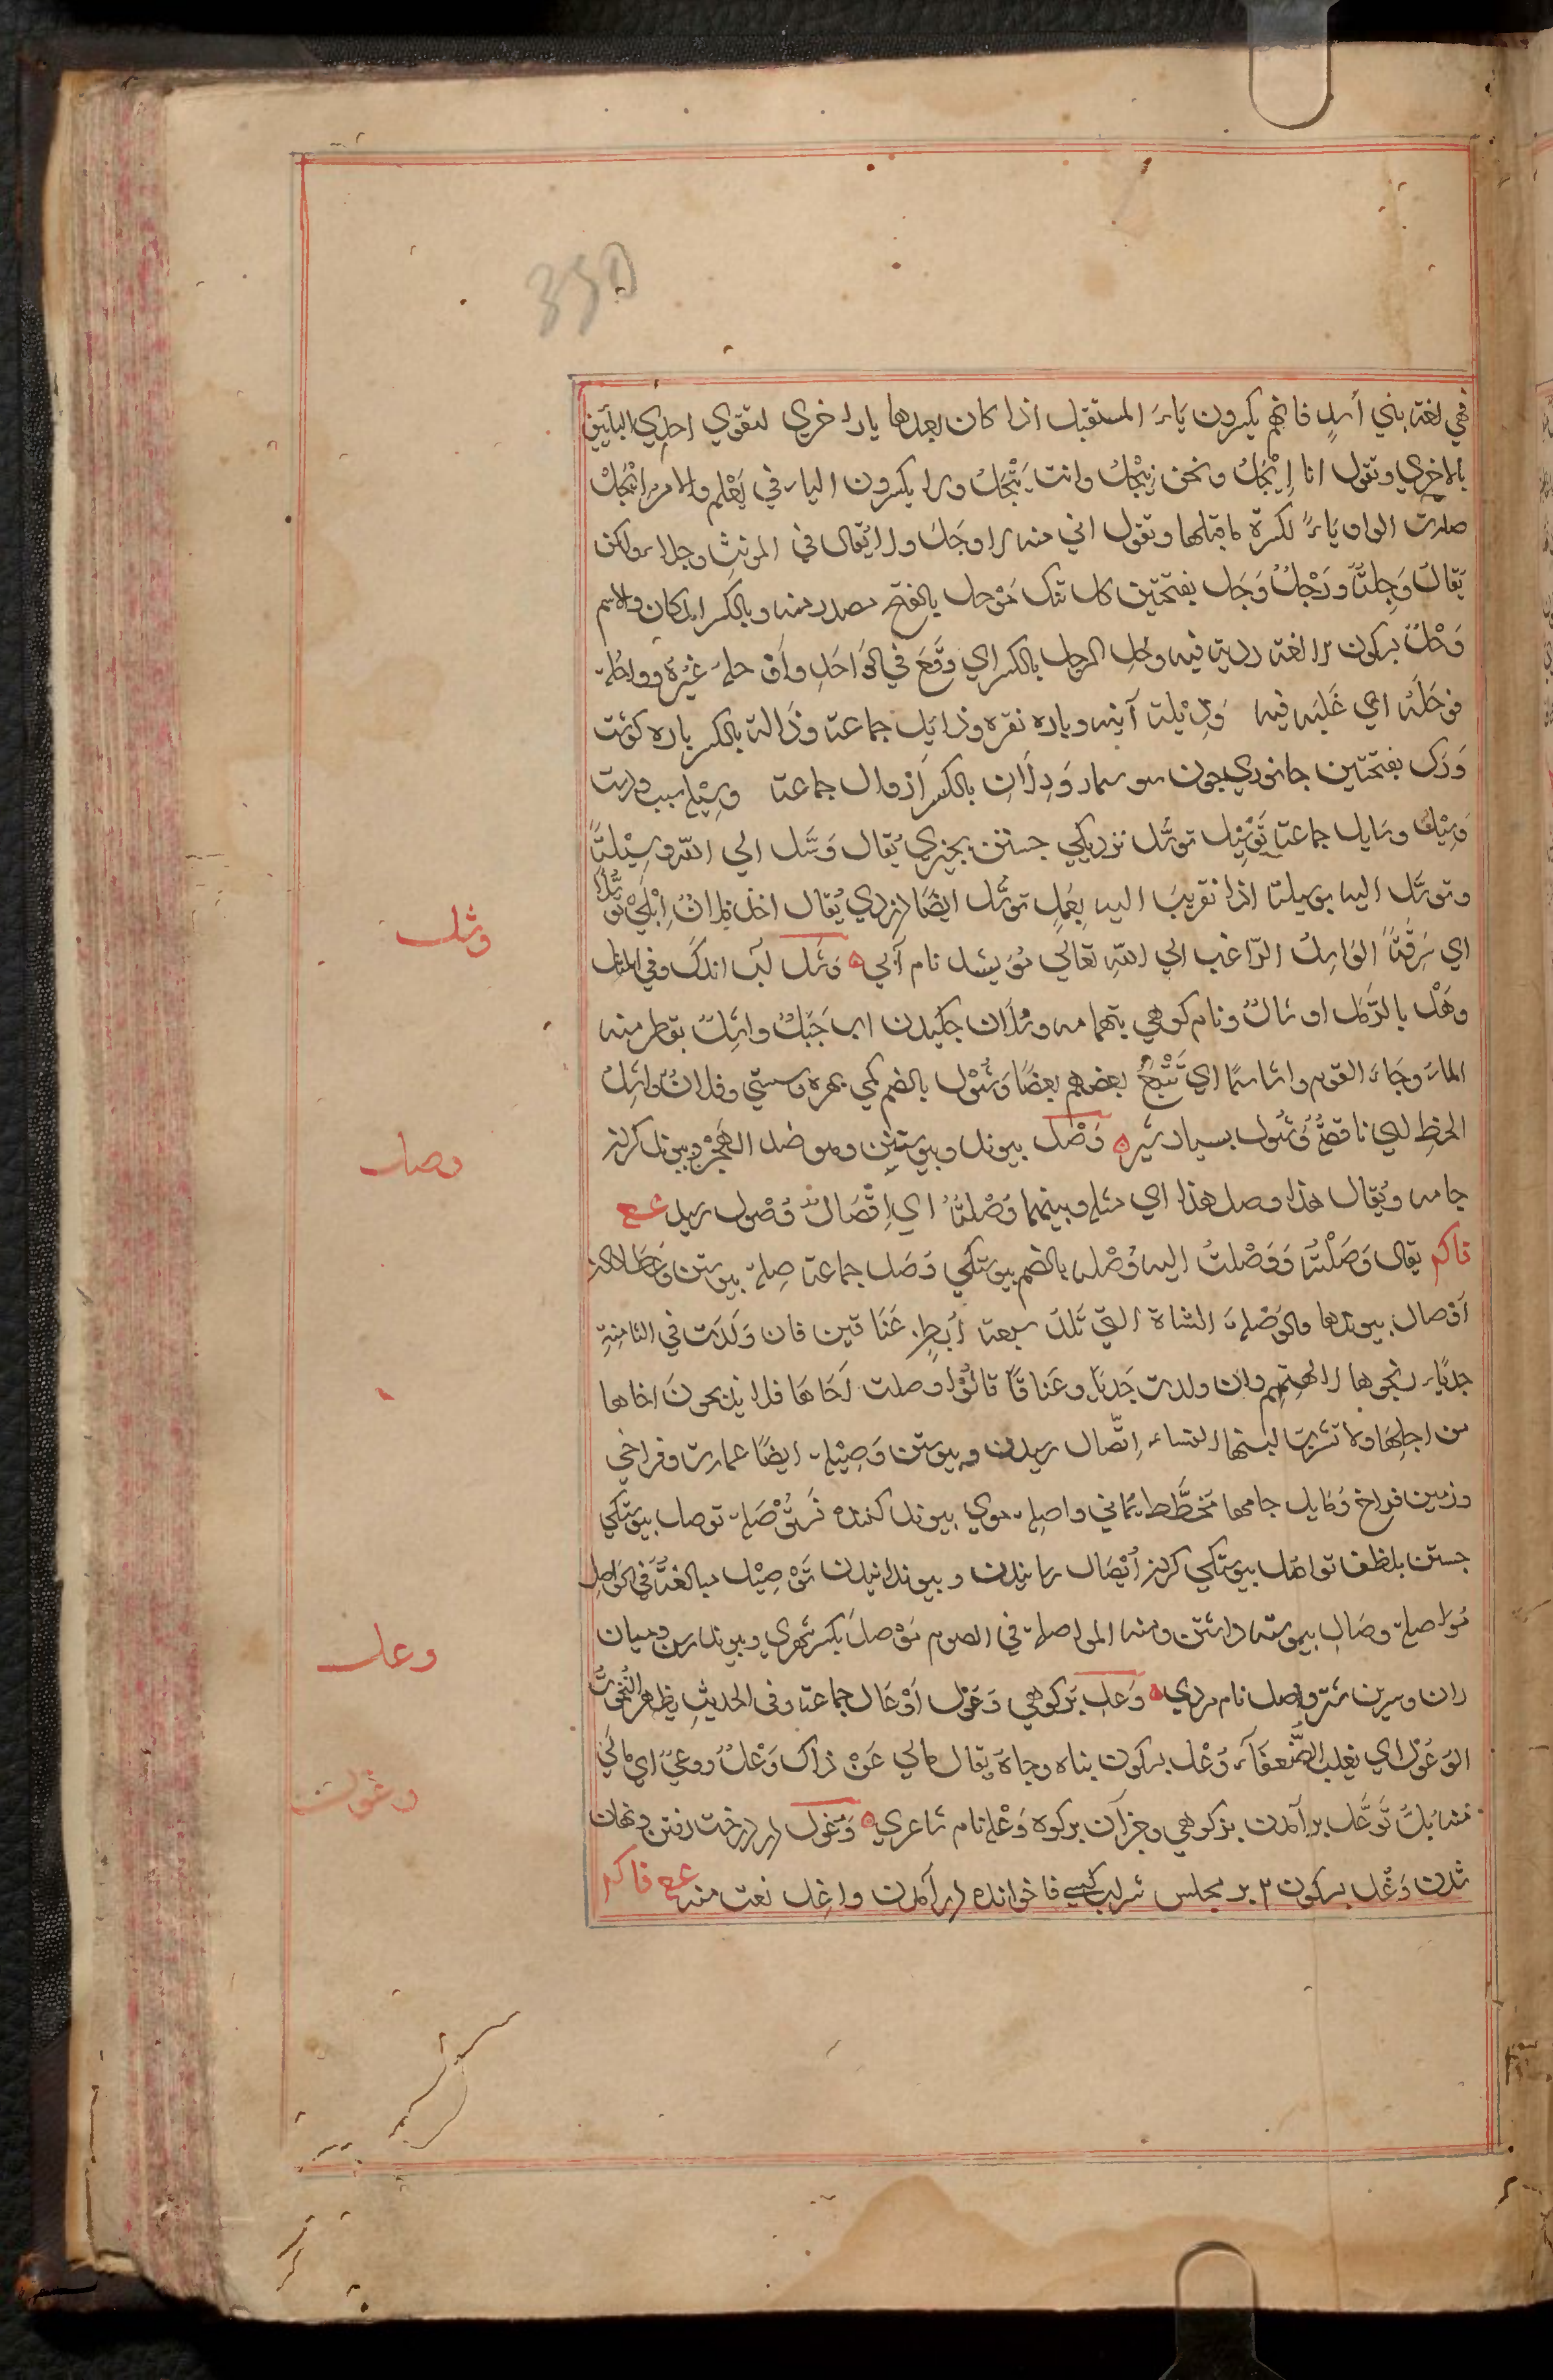 350
فهي لغة بني أسدٍ فانهم يكسرون يَاءَ المستقبل اذا كان بعدها ياء اخري لتقوي احدي اليأين
بالاخري وتقول انا اِيْجَلُ ونحن نِيْجَلُ وانت تِيْجَلُ ولا يكسرون الياء في يَعْلم والامر اِيْجَلْ
صارت الواو يَاءً لكسرة ما قبلها وتقول اني منه لاوجَلَ ولا يُقال في المونثِ وجلاء ولكن
يقالَ وَجِلَةً وَحْلٌ وَحَل بفتحتين كل تنك مَوْحل بالفتح مصدر منه وبالكسر المكان والاسم
وَحْلٌ بسكون لا لغة ردية فيه وحِل الرجل بالكسر اي وَقَعَ في الوَاحَلِ واَوْحله غيرُهُ وواحَله
فوَحَلَهُ اي غَلبَه فيه وَذِيْلة آينه وپاره نقره وذايل جماعة وذَالة بالكسر پاره كوشت
وَرَل بفتحتين جانوري چون سوسمار وَرِلَانِ بالكسر اَرْوال جماعة وسِيْله سبب ودست
وَسِيْل وسَايل جماعة تَوْسِيْل توسُّل نزديكي جستن بچيزي يُقال وَسَّل الي اللّه وسِيْلَتًا
وتوسَّل اليه بوسيلة اذا تقربَ اليه بِعَملٍ توسُّل ايضًا دزدي يُقال اخذ فلانُ اِبْلي تَوَسُّلًا
اي سَرِقَةً الوَاسِلُ الرّاغب الي اللّهِ تعالي مُوَيْسل نام آبي ه وَشَل آب اندك وفي المثل
وثل
وَهَلْ بالرَّمْل اوشالٌ ونام كوهي بتهامه وشَلَان چكيدن اب جَبَلٌ واشِلٌ يقطر منه
الماءَ وجَاءَ القوم واشاسمًا اي تَتْبَعُ بعضهم بعضًا وَشُوْل بالضم كمي بهره وسستي وفلانٌ واشِلُ
الحظِ اي ناقصهٗ وَشُول بسيار شير ه وَصْل پيوند وپيوستن وهو ضد الهَجْر وپيوند كردن
وصل
جامه ويُقال هذا وصل هذا اي مثله وبينهما وُصْلَةٌ اي اِتِّصَالٌ وُصْول رسيدن ع
فاكر يقال وَصَلْتُهُ وَوَصْلتُ اليه وُصْله بالضم پيوستكي وُصَل جماعة صِلة پيوستن وعطا دادن
اَوْصال پيوندها والوَصْلة الشاة التي تَلدُ سبعة اَبطنٍ عَنَاقين فان وَلَدَت في الثامِنةِ
جديًا ذبحوها لالهتهم وان ولدت جَديًا وعَناقًا قالُوْا وصلت اَخَاهَا فلا يذبحونَ اخاها
من اجلِها ولا تشربُ لبنها النساء اِتّصال رسيدن وپيوستن وَصِيْله ايضًا عمارت وفراخي
وزمين فراخ وَصايل جامها مخطّط يُماني واصِله موي پيوند كننده تَوَصُّل پيوستكي
جستن بلطف تواصُل پيوستكي كردن اِيْصَال رسانيدن وپيوندانيدن تَوْصِيْل مبالغةً في الوَاصِل
مُوَاصلة وصَال پيوسته داشتن ومنه المواصلة في الصوم مَوْصل بكسر شهري وپيوندارسن وميان
ران وسرين شتر واصل نام مردي ه وَعل بزكوهي وُعُوْل اَوْعَال جماعة وفي الحديثِ يظهر التُّحُوْتُ
وعل
الوَعُوْل اي يغلب الضُّعفَآء وَعْل بسكون پناه وجاهَ يقال مالي عَنْ ذاك وَعْلٌ ووعيٌ اي مالي
منه بُدٌّ تَوَعُّل برآمدن بزكوهي وجزآن بركوه وَعْله نام شاعري ه وُغول در درخت رفتن ونهان
وغول
شدن وَغْل بسكون ٢ بر مجلس شراب كسي ناخوانده درآمدن واغِل نعت منه ع فاكر